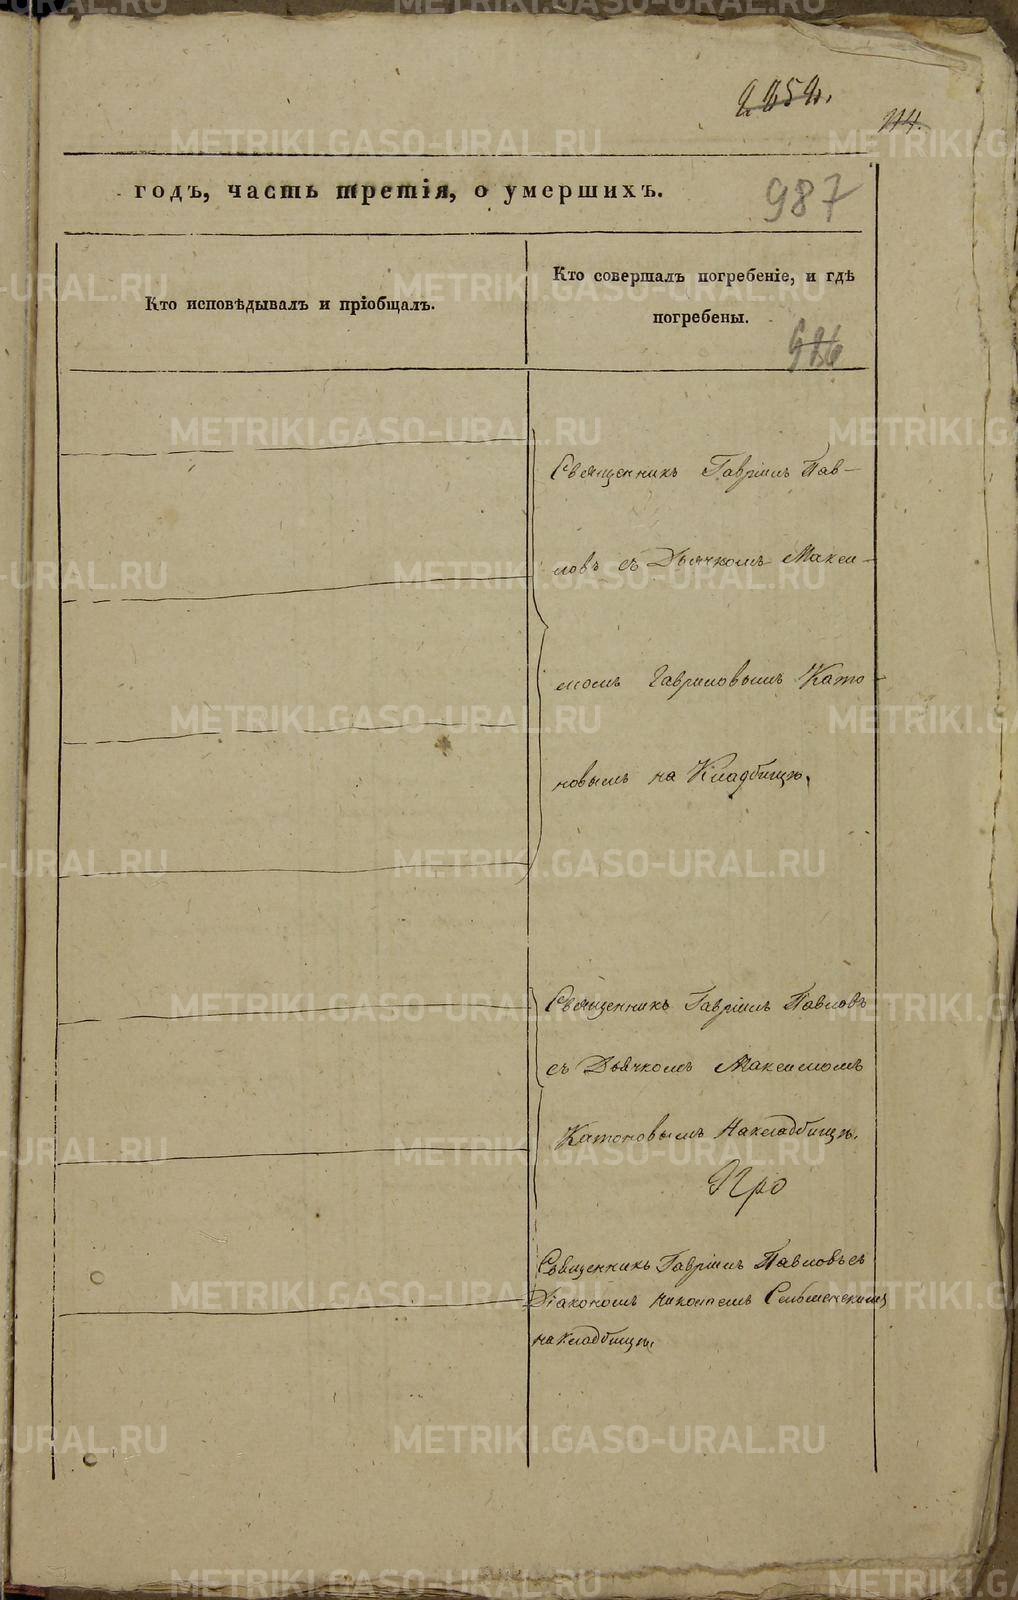 114.
годъ, часть третія, о умершихъ.
987
Кто исповѣдывалъ и пріобщалъ.
Кто совершалъ погребеніе, и гдѣ
погребены.
986
Священникъ Гавріилъ Пав-
ловъ съ Дьячкомъ Макси-
момъ Гавриловымъ Като-
новымъ на Кладбищѣ.
Священникъ Гавріилъ Павловъ
съ Дьячкомъ Максимомъ
Катоновымъ Накладбищѣ.
Священникъ Гавріилъ Павловъ съ
Діакономъ
на Кладбищѣ.
METRIKI.GASO-URAL.RU